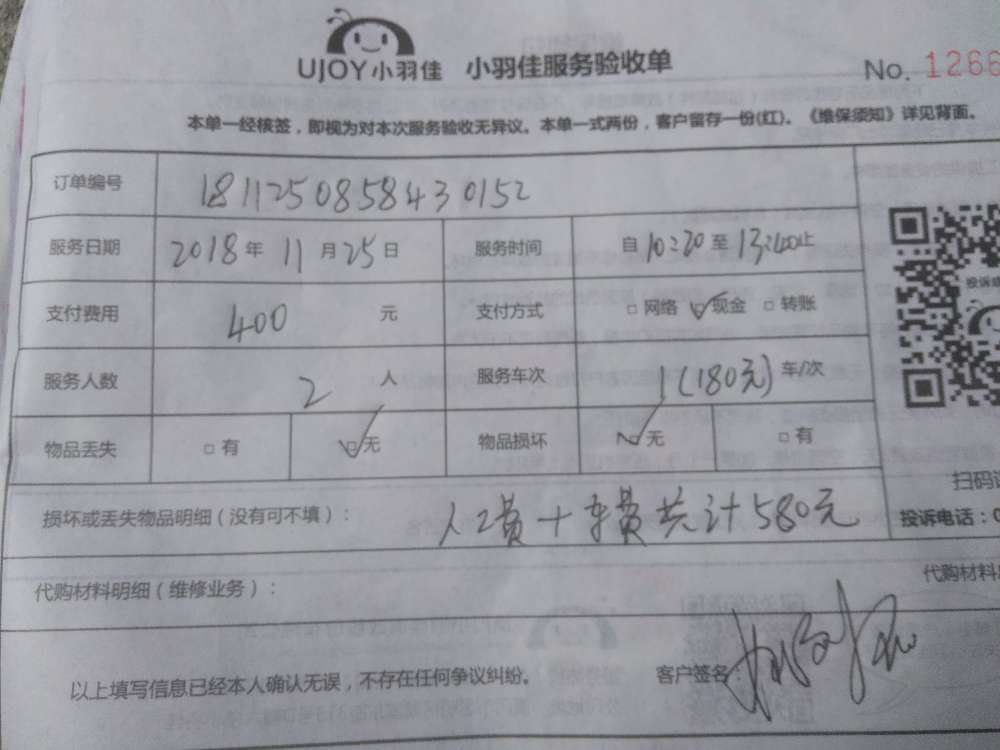 UJOY小羽佳 小羽佳服务验收单
No. 1266
本单一经核签，即视为对本次服务验收无异议。本单一式两份，客户留存一份(红)。《维保须知》详见背面。
订单编号 181125085843 0152
服务日期 2018年 11月25日 服务时间 自10:20至13:40止
支付费用 400 元 支付方式 □网络 ☑现金 □转账
服务人数 2 人 服务车次 1(180元)车/次
物品丢失 □有 ☑无 物品损坏 ☑无 □有
损坏或丢失物品明细（没有可不填）： 人工费+车费共计580元
扫码
投诉电话：0
代购材料明细（维修业务）：
代购材料
以上填写信息已经本人确认无误，不存在任何争议纠纷。 客户签名：